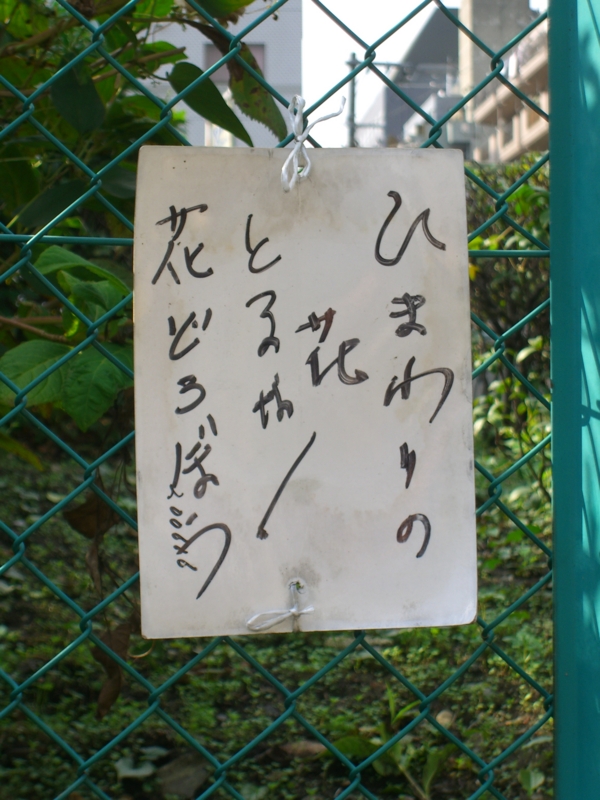 ひまわりの
花
とるな!
花どろぼう